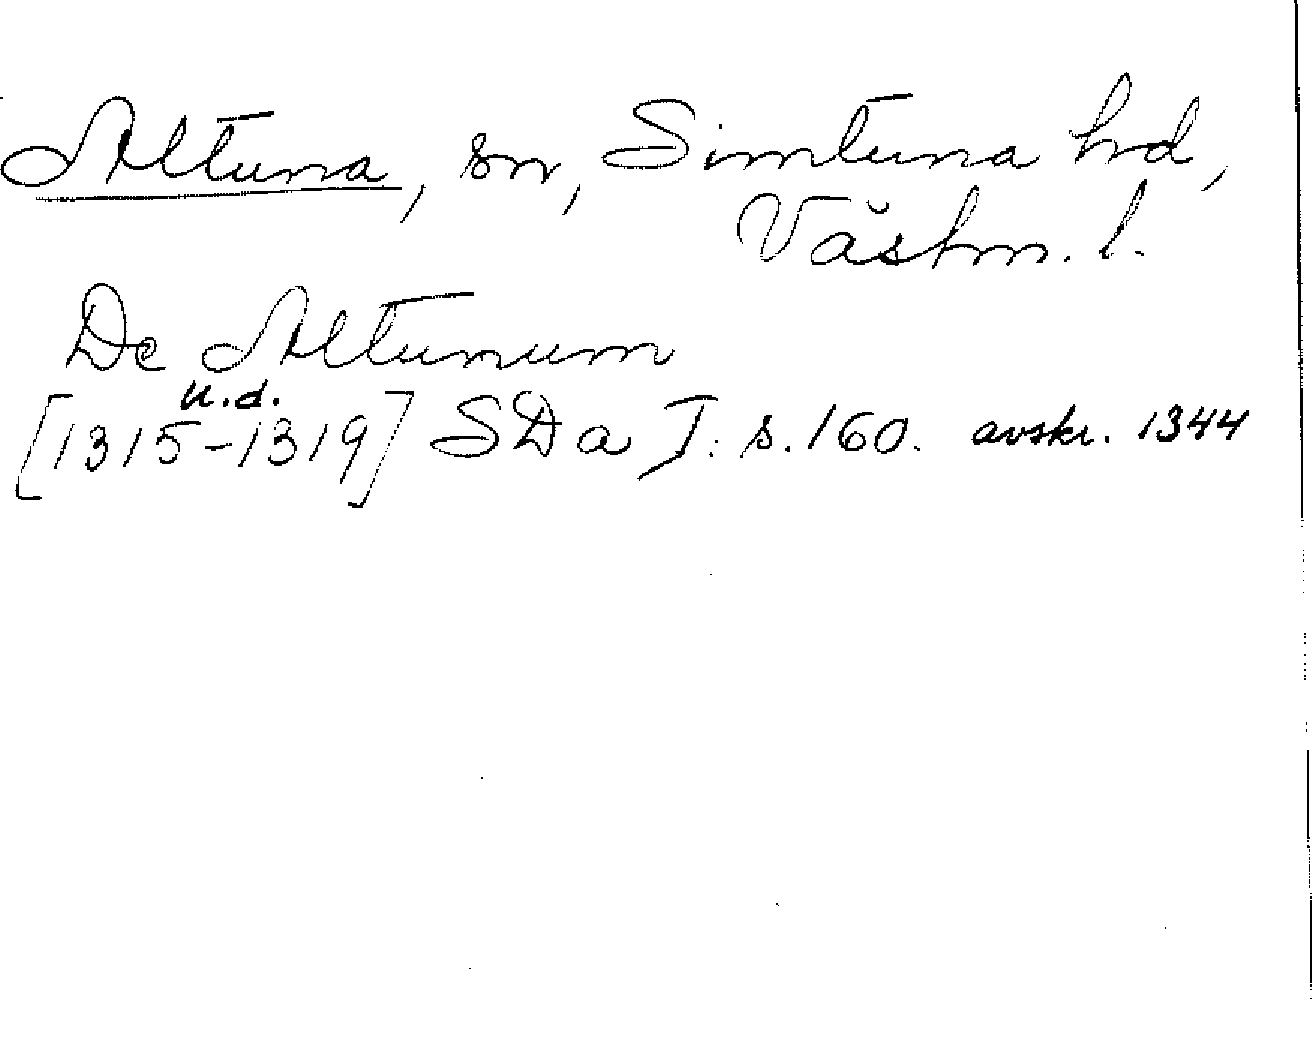 Altuna, sn, Simtuna hd,
Västm. l.
De Altunum
u.d.
[1315-1319] SDa I: s. 160. avskr. 1344